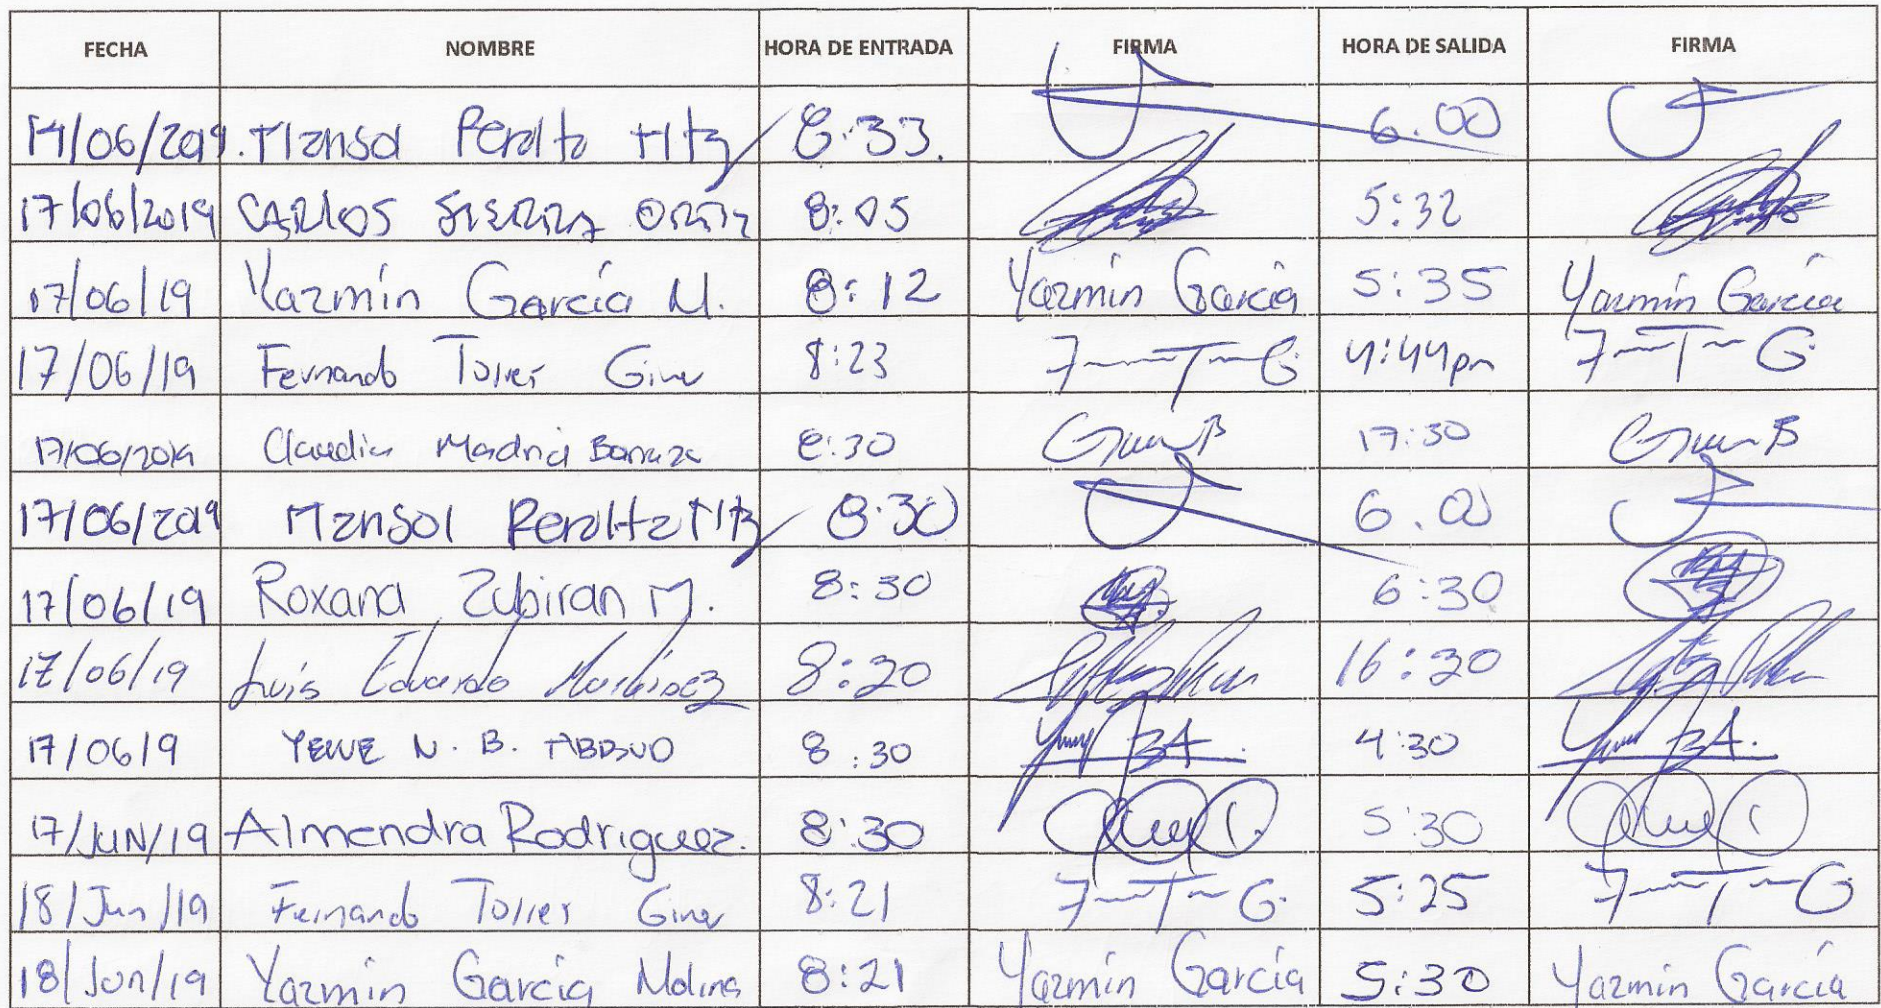 FECHA NOMBRE HORA DE ENTRADA FIRMA HORA DE SALIDA FIRMA
14/06/2019. Marisol Peralta Mtz 8:33. 6.00
17/06/2019 CARLOS SIERRA ORTIZ 8:05 5:32
17/06/19 Yazmín García M. 8:12 Yazmín García 5:35 Yazmín García
17/06/19 Fernando Torres Giner 8:23 F T G 4:44pm F T G
17/06/2019 Claudia Madrid Barraza 8:30 17:30
17/06/2019 Marisol Peralta Mtz 8:30 6.00
17/06/19 Roxana Zubiran M. 8:30 6:30
17/06/19 Luis Eduardo Martinez 8:20 16:30
17/06/9 N. B. 8:30 BA. 4:30 BA.
17/JUN/19 Almendra Rodriguez. 8:30 5:30
18/Jun/19 Fernando Torres Giner 8:21 F T G. 5:25 F T G
18/Jun/19 Yazmín García Molina 8:21 Yazmín García 5:30 Yazmín García